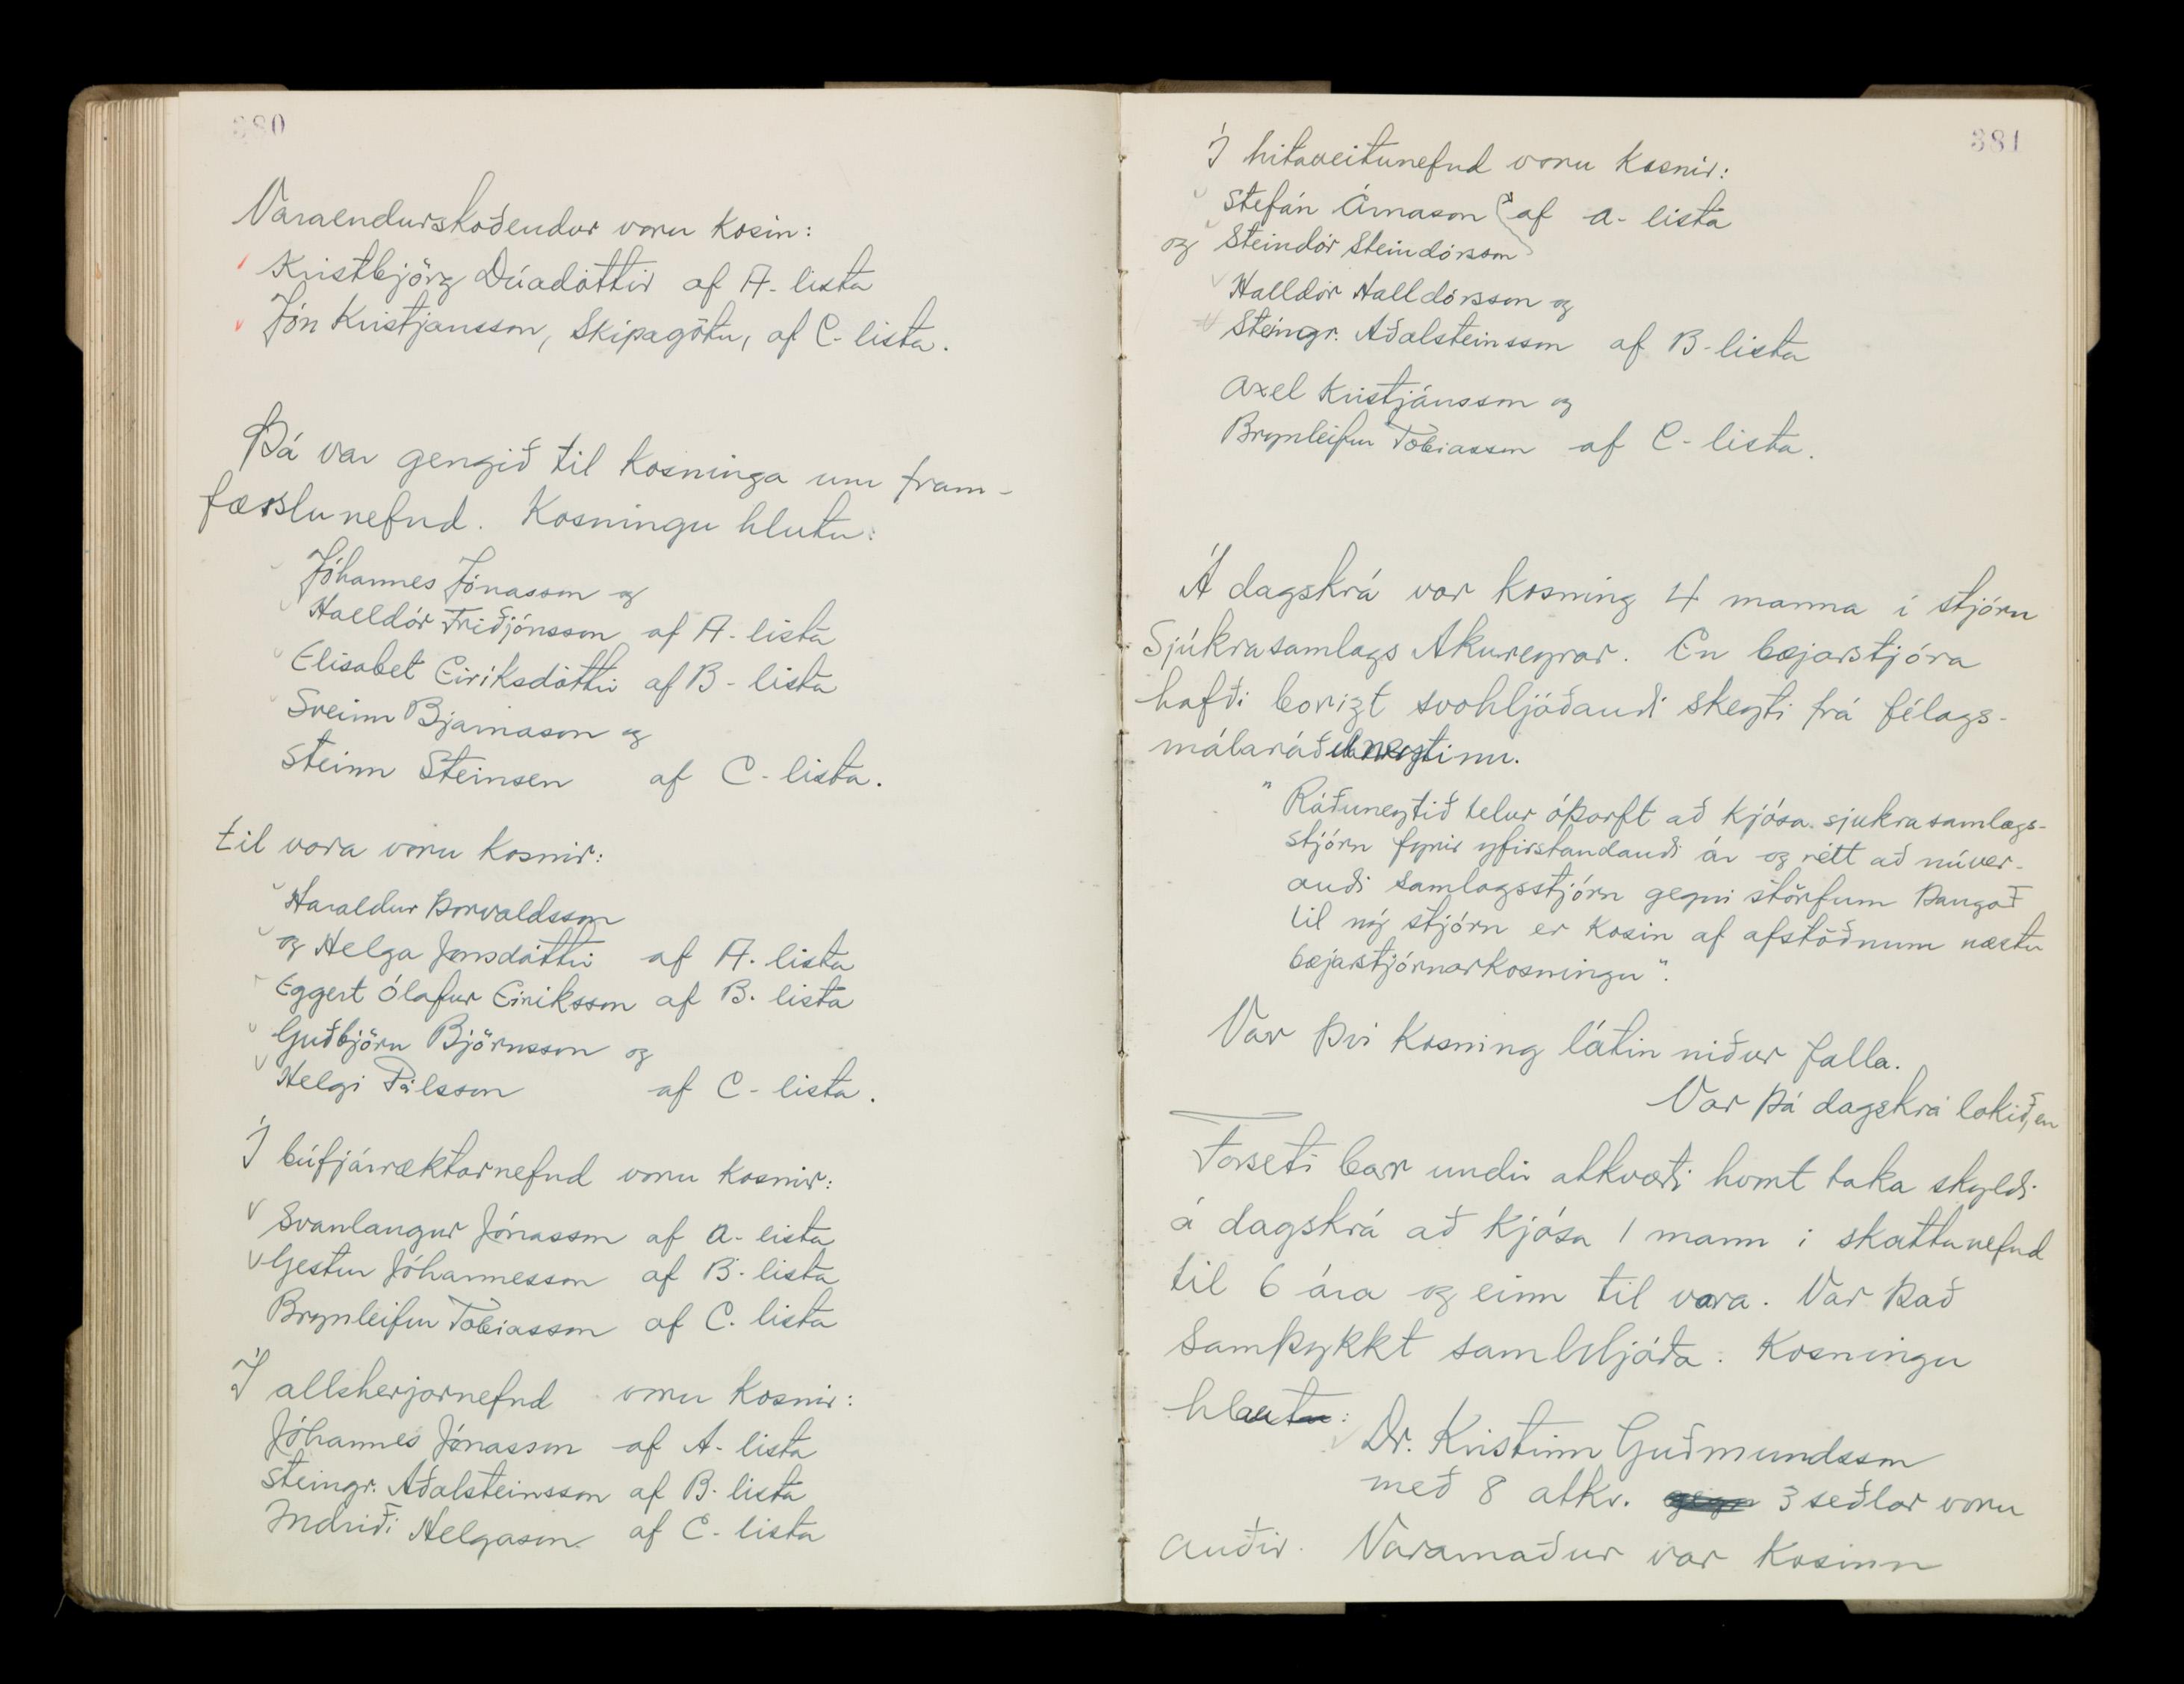 380
Varaendurskoðendur voru kosin:
Kristbjörg Dúadóttir af A-lista
Jón Kristjansson, Skipagötu, af C-lista.
Þá var gengið til kosninga um fram-
færslunefnd. Kosningu hlutu:
Jóhannes Jónasson og
Halldór Friðjónsson af A-lista
Elisabet Eiriksdóttir af B-lista
Sveinn Bjarnason og
Steinn Steinsen af C-lista.
til vara voru kosnir:
Haraldur Þorvaldsson
og Helga Jónsdóttir af A. lista
Eggert Ólafur Eiriksson af B. lista
Guðbjörn Björnsson og
Helgi Pálsson af C-lista.
Í búfjárræktarnefnd voru kosnir:
Svanlaugur Jónasson af A-lista
Gestur Jóhannesson af B-lista
Brynleifur Tobiasson af C. lista
Í allsherjarnefnd voru kosnir:
Jóhannes Jónasson af A-lista
Steingr. Aðalsteinsson af B-lista
Indriði Helgason af C-lista
381
Í hitaveitunefnd voru kosnir:
Stefán Árnason af A-lista
og Steindór Steindórsson
Halldór Halldórsson og
Steingr. Aðalsteinsson af B-lista
Axel Kristjánsson og
Brynleifur Tobiasson af C-lista.
Á dagskrá var kosning 4 manna í stjórn
Sjúkrasamlags Akureyrar. En bæjarstjóra
hafði borizt svohljóðandi skeyti frá félags-
málaráðuneytinu.
"Ráðuneytið telur óþarft að kjósa sjukrasamlags-
stjórn fyrir yfirstandandi ár og rétt að núver-
andi samlagsstjórn gegni störfum þangað
til ný stjórn er kosin af afstöðnum næstu
bæjarstjórnarkosningu".
Var þvi kosning látin niður falla.
Var þá dagskrá lokið, en
Forseti bar undir atkvæði hvort taka skyldi
á dagskrá að kjósa 1 mann i skattanefnd
til 6 ára og einn til vara. Var það
samþykkt samhljóða. Kosningu
hlaut:
Dr. Kristinn Guðmundsson
með 8 atkv. gegn 3 seðlar voru
auðir. Varamaður var kosinn